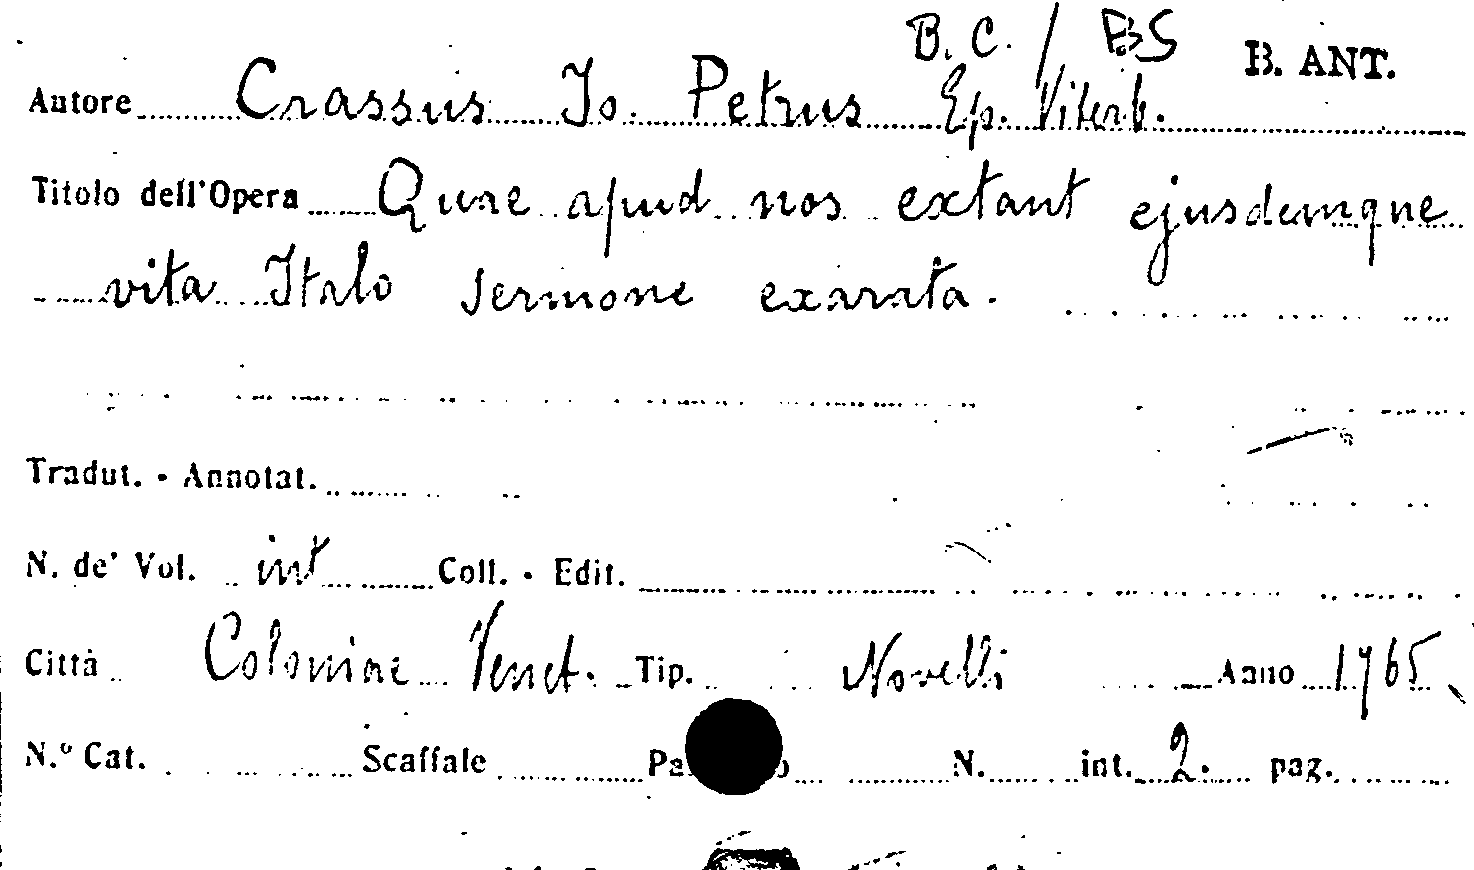 B. C. / BS B. ANT.
Autore Crassus Jo. Petrus Ep. Viterb.
Titolo dell'Opera Quae apud nos extant ejusdemque
vita Italo sermone exarata.
Tradut. - Annotat.
N. de' Vol. int Coll. - Edit.
Città Coloniae Venet. Tip. Novelli Anno 1765
N.º Cat. Scaffale N. int. 2. pag.